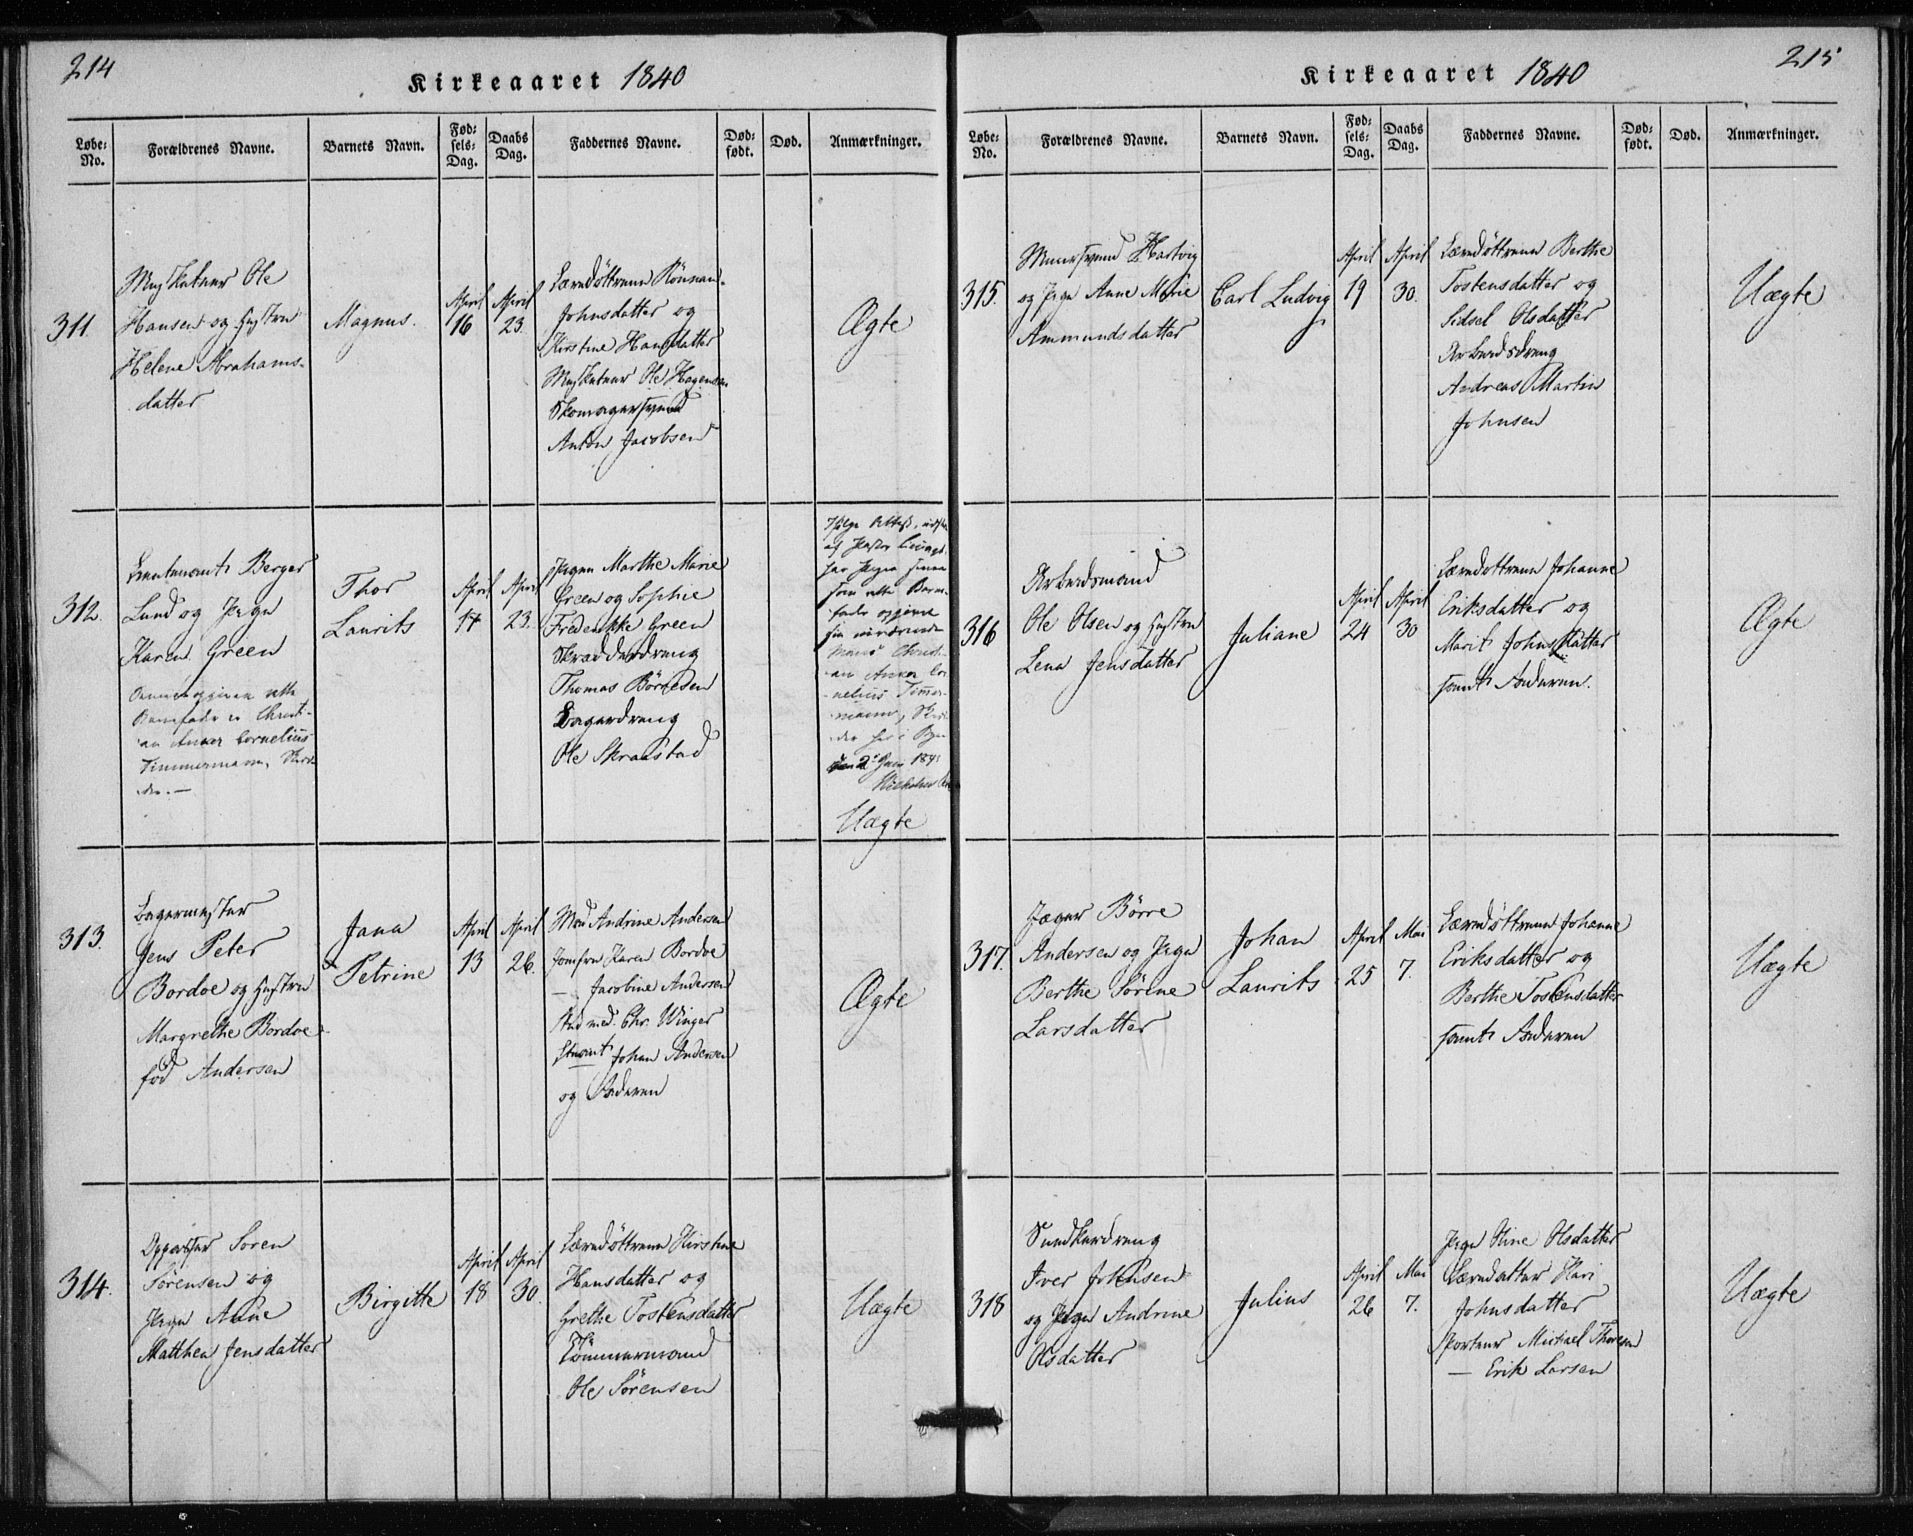 214
Kirkeaaret 1840
Løbe-No.
Forældrenes Navne.
Barnets Navn.
Fødsels-Dag.
Daabs Dag.
Faddernes Navne.
Dødfødt.
Død.
Anmærkninger.
311.
Musketeer Ole
Hansen og Hustru
Helene Abrahams-
datter
Magnus.
April
16
April
23.
Johnsdatter og
Kirstine Hansdatter
Musketeer Ole Hagensen
Skomagersvend
Anton Jacobsen
Ægte
312.
Lieutenant Berger
Lund og Pige
Karen Green
Barnefader er Christi-
an Anker Cornelius
Timmermann,
Thor
Laurits
April
17
April
23.
Pigen Marthe Marie
Green og Sophie
Frederikke Green
Skrædderdreng
Thomas Börresen
Bagerdreng
Ole Skraastad
Uægte
313.
Bagermester
Jens Peter
Bordoe og Hustru
Margrethe Bordoe
fød Andersen
Jana
Petrine
April
13
April
26.
Mad Andrine Andersen
Jomfru Karen Bordoe
— Jacobine Andersen
Stud med. Chr. Winger
Johan Andersen
og Faderen
Ægte
314.
Sören
Sörensen og
Pige Anne
Matthea Jensdatter
Birgitte
April
18
April
30.
Kirstine
Hansdatter og
Grethe Tostensdatter
Tömmermand
Ole Sörensen
Uægte
215
Kirkeaaret 1840
Løbe-No.
Forældrenes Navne.
Barnets Navn.
Fødsels-Dag.
Daabs Dag.
Faddernes Navne.
Dødfødt.
Død.
Anmærkninger.
315.
Muursvend Hartvig
og Pige Anne Marie
Ammundsdatter
Carl Ludvig
April
19
April
30.
Berthe
Tostensdatter og
Sidsel Olsdatter
Arbeidsdreng
Andreas Martin
Johnsen
Uægte
316
Arbeidsmand
Ole Olsen og Hustru
Lena Jensdatter
Juliane
April
24
April
30
Johanne
Eriksdatter og
Marit Johnsdatter
samt Faderen.
Ægte
317.
Jæger Börre
Andersen og Pige
Berthe Sörine
Larsdatter
Johan
Laurits
April
25
Mai
7.
Johanne
Eriksdatter og
Berthe Tostensdatter
samt Faderen
Uægte
318
Snedkerdreng
Iver Johnsen
og Pige Andrine
Olsdatter
Julius
April
26
Mai
7.
Pige Stine Olsdatter
Kari
Johnsdatter
Michael Thoresen
— Erik Larsen
Uægte